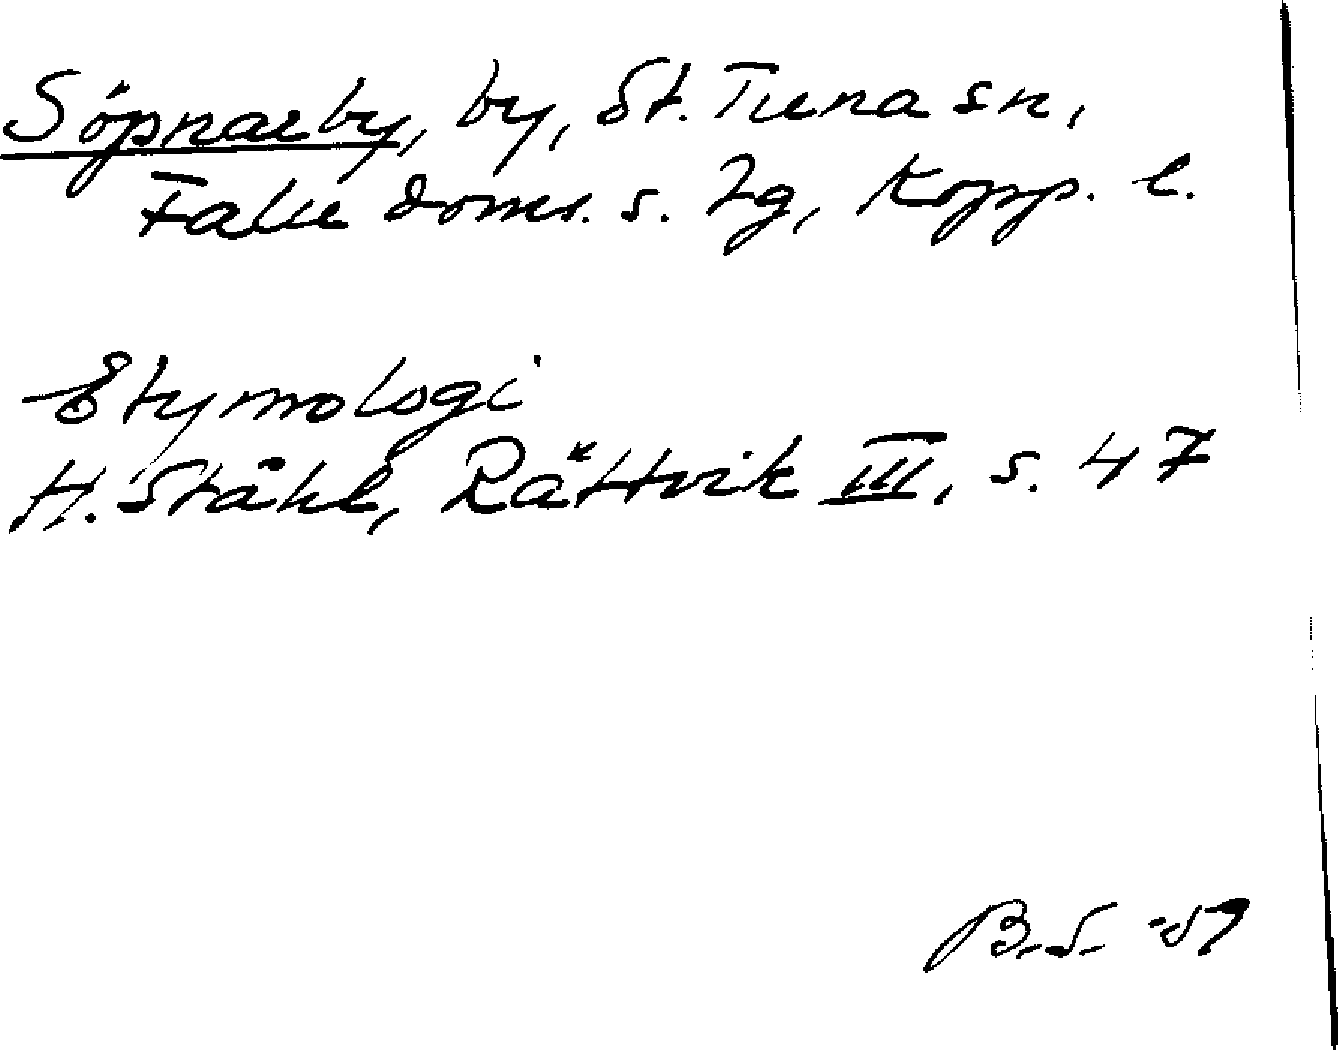 Söpnarby, by, St. Tuna sn,
Falu doms. s. lg, Kopp. l.
Etymologi
H. Ståhl, Rättvik III, s. 47
B.S. -59